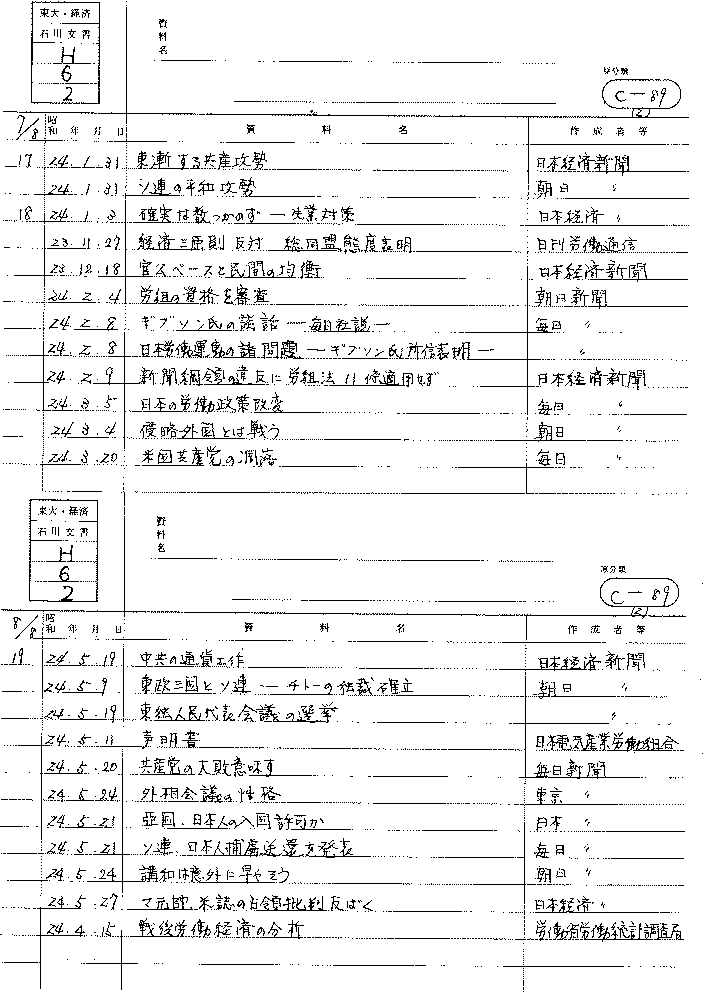 東大・経済
石川文書
H
6
2
資料名
原分類
C-89
(2)
7/8 昭和 年 月 日 資料名 作成者等
17 24.1.31 東漸する共産攻勢 日本経済新聞
24.1.31 ソ連の平和攻勢 朝日 〃
18 24.1.3 確実は数っかのず ― 失業対策 日本経済 〃
23.11.27 経済三原則反対 総同盟態度表明 日刊労働通信
23.12.18 官公ベースと民間の均衡 日本経済新聞
24.2.4 労組の資格を審査 朝日新聞
24.2.8 ギブソン氏の談話 ― 毎日社説 ― 毎日 〃
24.2.8 日本労働運動の諸問題 ― ギブソン氏所信表明 ― 〃
24.2.9 新聞綱領の違反に労組法11條適用せず 日本経済新聞
24.3.5 日本の労働政策改変 毎日 〃
24.3.4 侵略外国とは戦う 朝日 〃
24.3.20 米国共産党の凋落 毎日 〃
東大・経済
石川文書
H
6
2
資料名
原分類
C-89
(2)
8/8 昭和 年 月 日 資料名 作成者等
19 24.5.19 中共の通貨工作 日本経済新聞
24.5.9 東欧三国とソ連 ― チトーの独裁確立 朝日 〃
24.5.19 東独人民代表会議の選挙 〃
24.5.11 声明書 日本電気産業労働組合
24.5.20 共産党の大敗意味す 毎日新聞
24.5.24 外相会議の性格 東京 〃
24.5.21 亜国、日本人の入国許可か 日本 〃
24.5.21 ソ連、日本人捕虜送還を発表 毎日 〃
24.5.24 講和は意外に早やそう 朝日 〃
24.5.27 マ元帥、米誌の占領批判反ばく 日本経済 〃
24.4.15 戦後労働経済の分析 労働省労働統計調査局